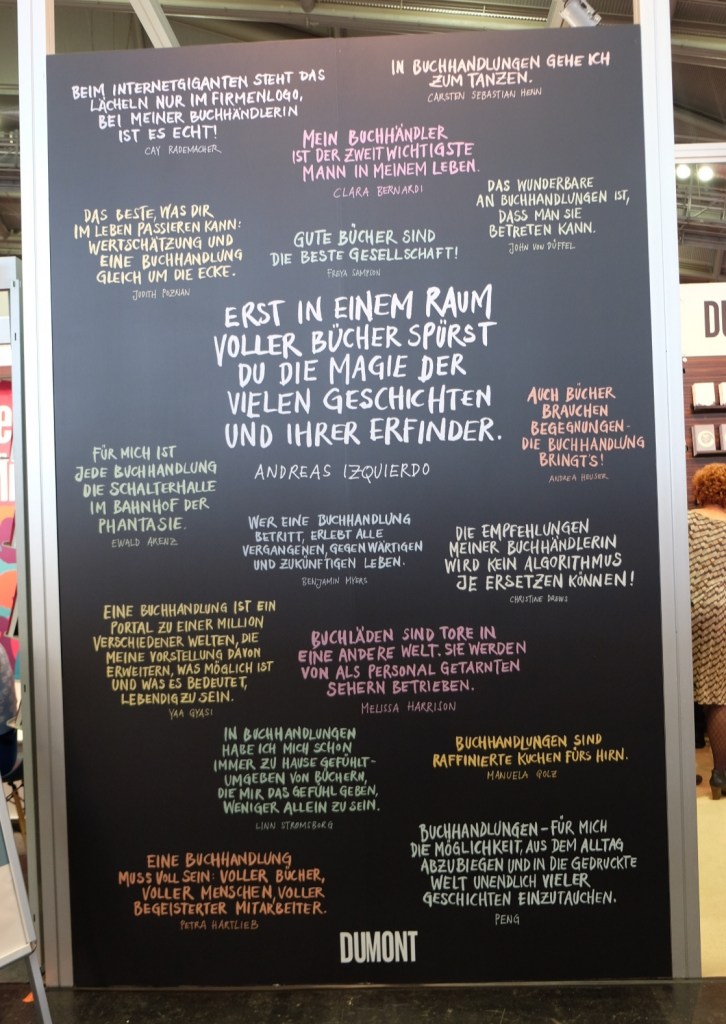 BEIM INTERNETGIGANTEN STEHT DAS
LÄCHELN NUR IM FIRMENLOGO,
BEI MEINER BUCHHÄNDLERIN
IST ES ECHT!
CAY RADEMACHER
IN BUCHHANDLUNGEN GEHE ICH
ZUM TANZEN.
CARSTEN SEBASTIAN HENN
MEIN BUCHHÄNDLER
IST DER ZWEITWICHTIGSTE
MANN IN MEINEM LEBEN.
CLARA BERNARDI
DAS WUNDERBARE
AN BUCHHANDLUNGEN IST,
DASS MAN SIE
BETRETEN KANN.
JOHN VON DÜFFEL
DAS BESTE, WAS DIR
IM LEBEN PASSIEREN KANN:
WERTSCHÄTZUNG UND
EINE BUCHHANDLUNG
GLEICH UM DIE ECKE.
JUDITH POZNAN
GUTE BÜCHER SIND
DIE BESTE GESELLSCHAFT!
FREYA SAMPSON
ERST IN EINEM RAUM
VOLLER BÜCHER SPÜRST
DU DIE MAGIE DER
VIELEN GESCHICHTEN
UND IHRER ERFINDER.
ANDREAS IZQUIERDO
AUCH BÜCHER
BRAUCHEN
BEGEGNUNGEN-
DIE BUCHHANDLUNG
BRINGT'S!
ANDREA HEUSER
FÜR MICH IST
JEDE BUCHHANDLUNG
DIE SCHALTERHALLE
IM BAHNHOF DER
PHANTASIE.
EWALD ARENZ
WER EINE BUCHHANDLUNG
BETRITT, ERLEBT ALLE
VERGANGENEN, GEGENWÄRTIGEN
UND ZUKÜNFTIGEN LEBEN.
BENJAMIN MYERS
DIE EMPFEHLUNGEN
MEINER BUCHHÄNDLERIN
WIRD KEIN ALGORITHMUS
JE ERSETZEN KÖNNEN!
CHRISTINE DREWS
EINE BUCHHANDLUNG IST EIN
PORTAL ZU EINER MILLION
VERSCHIEDENER WELTEN, DIE
MEINE VORSTELLUNG DAVON
ERWEITERN, WAS MÖGLICH IST
UND WAS ES BEDEUTET,
LEBENDIG ZU SEIN.
YAA GYASI
BUCHLÄDEN SIND TORE IN
EINE ANDERE WELT. SIE WERDEN
VON ALS PERSONAL GETARNTEN
SEHERN BETRIEBEN.
MELISSA HARRISON
IN BUCHHANDLUNGEN
HABE ICH MICH SCHON
IMMER ZU HAUSE GEFÜHLT-
UMGEBEN VON BÜCHERN,
DIE MIR DAS GEFÜHL GEBEN,
WENIGER ALLEIN ZU SEIN.
LINN STRØMSBORG
BUCHHANDLUNGEN SIND
RAFFINIERTE KÜCHEN FÜRS HIRN.
MANUELA GOLZ
EINE BUCHHANDLUNG
MUSS VOLL SEIN: VOLLER BÜCHER,
VOLLER MENSCHEN, VOLLER
BEGEISTERTER MITARBEITER.
PETRA HARTLIEB
BUCHHANDLUNGEN - FÜR MICH
DIE MÖGLICHKEIT, AUS DEM ALLTAG
ABZUBIEGEN UND IN DIE GEDRUCKTE
WELT UNENDLICH VIELER
GESCHICHTEN EINZUTAUCHEN.
PENG
DUMONT